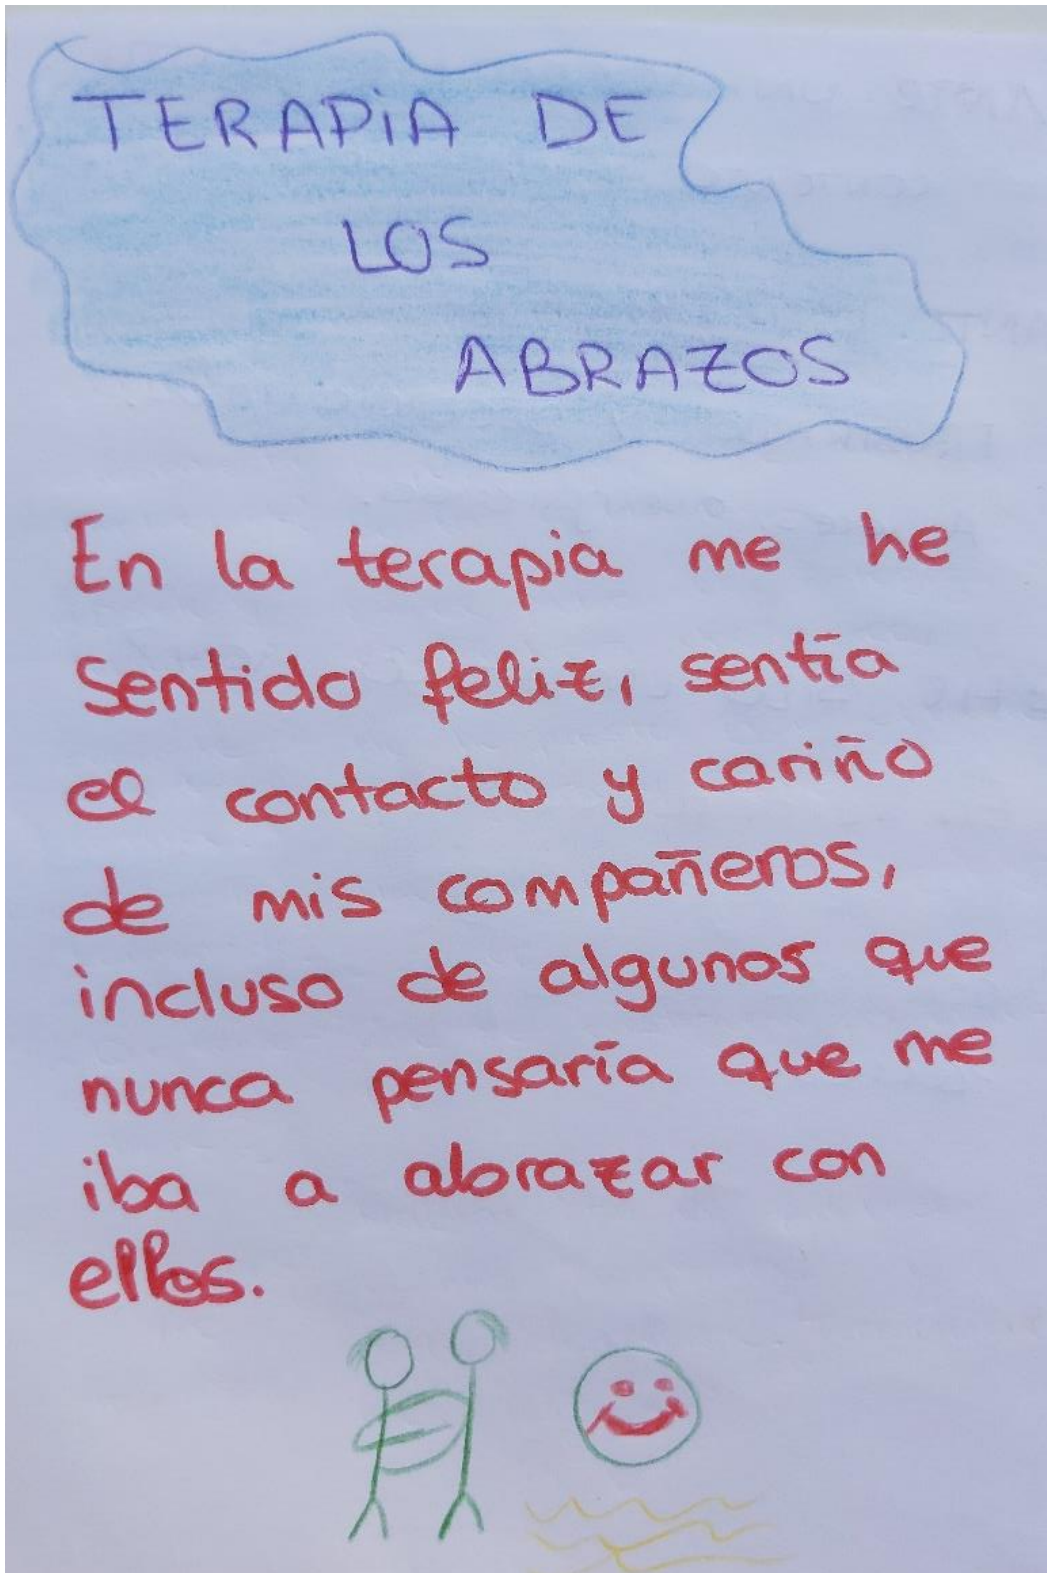 TERAPiA DE
LOS
ABRAZOS
En la terapia me he
Sentido feliz, sentía
el contacto y cariño
de mis compañeros,
incluso de algunos que
nunca pensaría que me
iba a abrazar con
ellos.